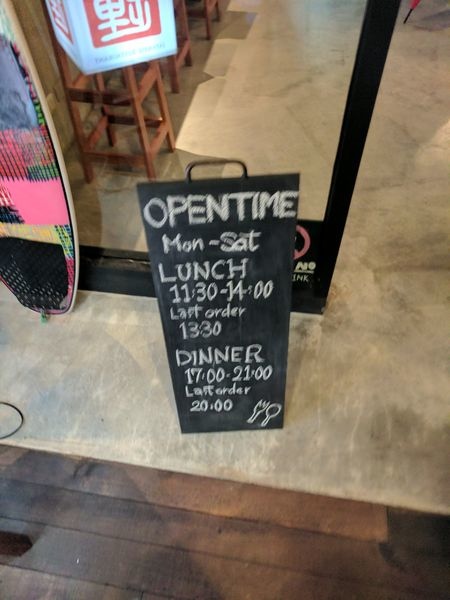 OPENTIME
Mon-Sat
LUNCH
11:30-14:00
Last order
13:30
DINNER
17:00-21:00
Last order
20:00